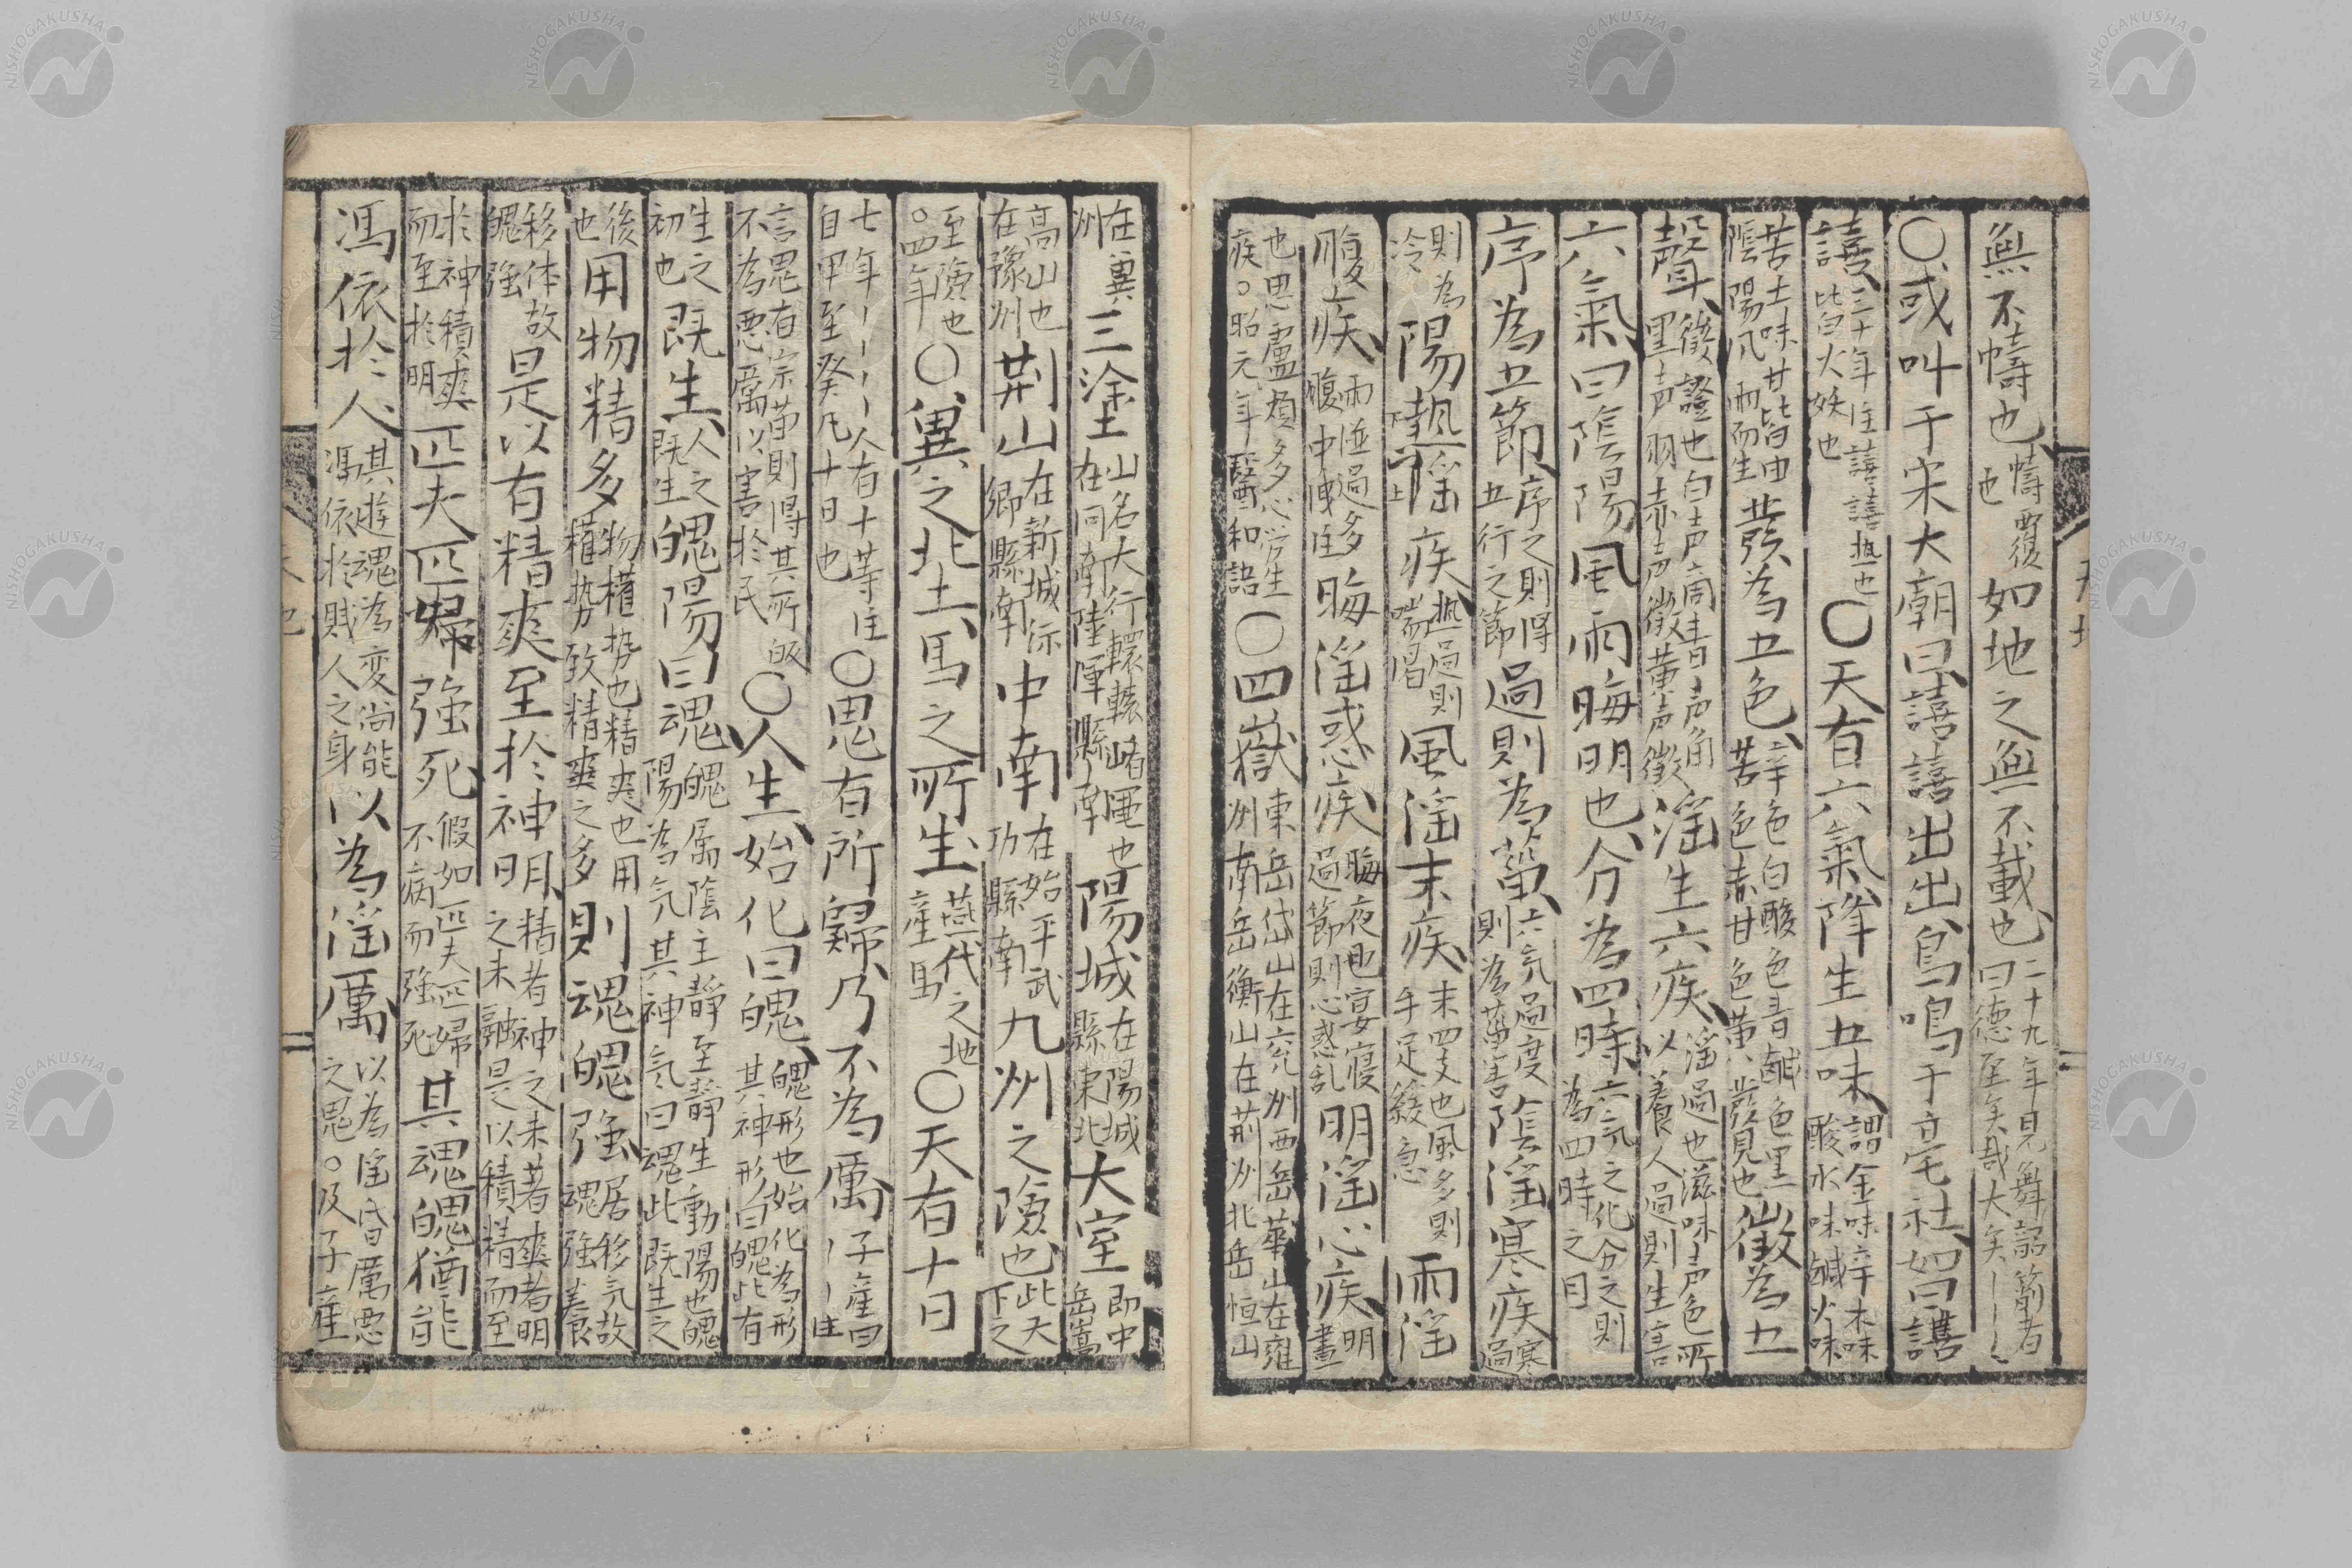 無不幬也幬覆也如地之無不載也二十九年見舞韶箾者曰德至矣哉大矣
〇或叫于宋大廟曰譆譆出出鳥鳴于亳社如曰譆
譆三十年注譆譆熱也皆火妖也〇天有六氣降生五味謂金味辛木味酸水味鹹火味
苦土味甘皆由陰陽風雨而生發為五色辛色白酸色青鹹色黒苦色赤甘色黄發見也徵為五
聲徵證也白声商青声角黒声羽赤声徵黄声徵淫生六疾淫過也滋味声色所以養人過則生害
六氣曰陰陽風雨晦明也分為四時六氣之化分之則為四時之目
序為五節序之則得五行之節過則為菑六氣過度則為菑害陰淫寒疾寒過
則為冷陽淫熱疾熱過則喘渇風淫末疾末四支也風多則手足緩急雨淫
腹疾雨湿過多腹中洩注晦淫惑疾晦夜也宴寢過節則心惑乱明淫心疾明晝
也思慮煩多心労生疾〇昭元年醫和語〇四嶽東岳岱山在兖州西岳華山在雍州南岳衡山在荊州北岳恒山
在冀州三塗山名大行轘轅崤黽也在同南陸渾縣南陽城在陽城縣東北大室即中岳嵩
高山也在豫州荊山在新城沶鄉縣南中南在始平武功縣南九州之險也此天下之
至險也〇四年〇冀之北土馬之所生燕代之地産馬〇天有十日
七年人有十等注自甲至癸凡十日也〇鬼有所歸乃不為厲子産曰注
言鬼有宗廟則得其所皈不為悪厲以害於民〇人生始化曰魄魄形也始化為形其神形曰魄此有
生之初也既生人之既生魄陽曰魂魄属陰主靜至靜生動陽也魄陽為氣其神氣曰魂此既生之
後也用物精多物權势也精爽也用權势致精爽之多則魂魄強居移氣故魂強養
移体故魄強是以有精爽至於神明精者神之未著爽者明之未融是以積精而至
於神積爽而至於明匹夫匹婦強死假如匹夫匹婦不病而強死其魂魄猶能
馮依於人其遊魂為変尚能馮依於賊人之身以為淫厲以為淫昏厲悪之鬼〇及子産